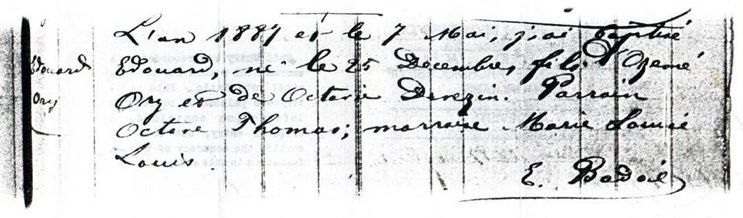 L'an 1887 et le 7 Mai, j'ai baptisé
Edouard Edouard, né le 25 Decembre, fils d'Ozemé
Ory Ory et de Octavie Derozin. Parrain
Octave Thomas; marraine Marie Louise
Louis.
E. Badoil